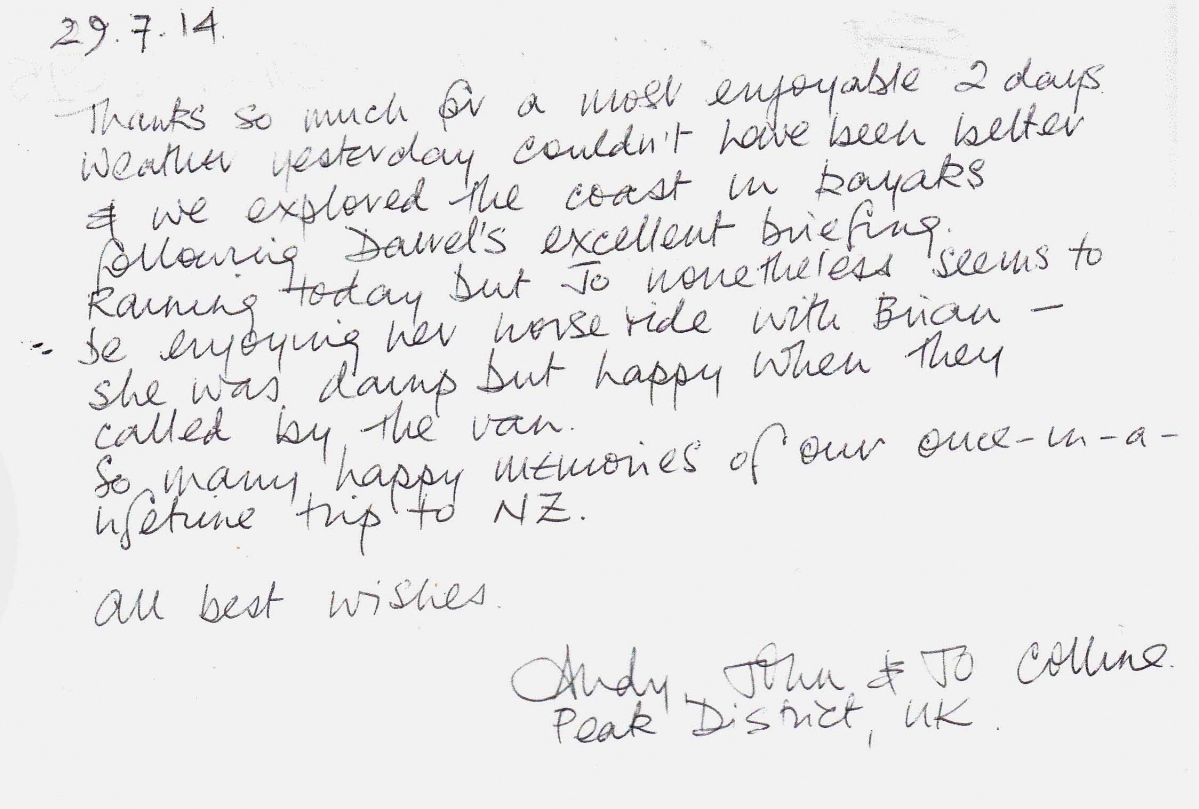 29.7.14.
Thanks so much for a most enjoyable 2 days.
Weather yesterday couldn't have been better
& we explored the coast in kayaks
following Darrel's excellent briefing.
Raining today but Jo nonetheless seems to
be enjoying her horse ride with Brian –
she was damp but happy when they
called by the van.
So many happy memories of our once-in-a-
lifetime trip to NZ.
All best wishes.
Andy, John & Jo
Peak District, UK.